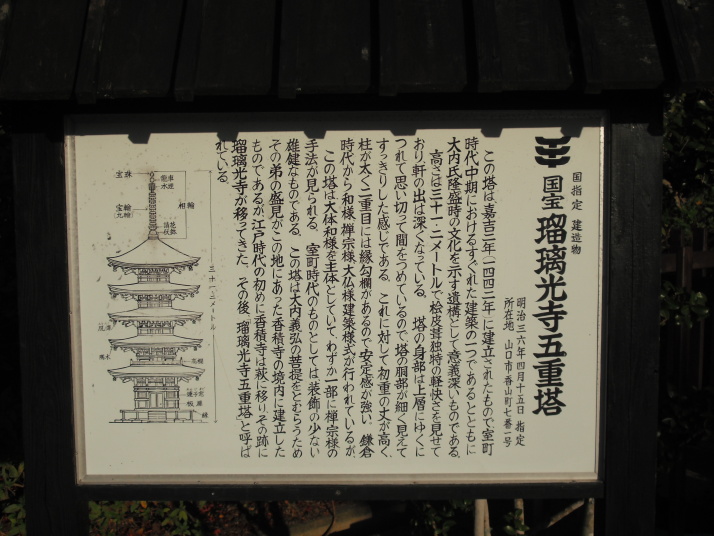 国指定 建造物
国宝 瑠璃光寺五重塔
明治三六年四月十五日 指定
所在地 山口市香山町七番一号
この塔は、嘉吉二年(一四四二年)に建立されたもので、室町
時代中期におけるすぐれた建築の一つであるとともに
大内氏隆盛時の文化を示す遺構として意義深いものである。
高さは三十一・二メートルで、桧皮葺独特の軽快さを見せて
おり、軒の出は深くなっている。塔の身部は上層にゆくに
つれて思い切って間をつめているので、塔の胴部が細く見えて
すっきりした感じである。これに対して初重の丈が高く、
柱が太く、二重目には縁勾欄があるので安定感が強い。鎌倉
時代から和様、禅宗様、大仏様建築様式が行われているが、
この塔は大体和様を主体としていて、わずか一部に禅宗様の
手法が見られる。室町時代のものとしては装飾の少ない
雄健なものである。この塔は大内義弘の菩提をとむらうため
その弟の盛見がこの地にあった香積寺の境内に建立した
ものであるが、江戸時代の初めに香積寺は萩に移りその跡に
瑠璃光寺が移ってきた。その後、瑠璃光寺五重塔と呼ば
れている。
宝珠
竜車
水煙
相輪
宝輪
九輪
請花
伏鉢
三十一・二メートル
勾欄
縁